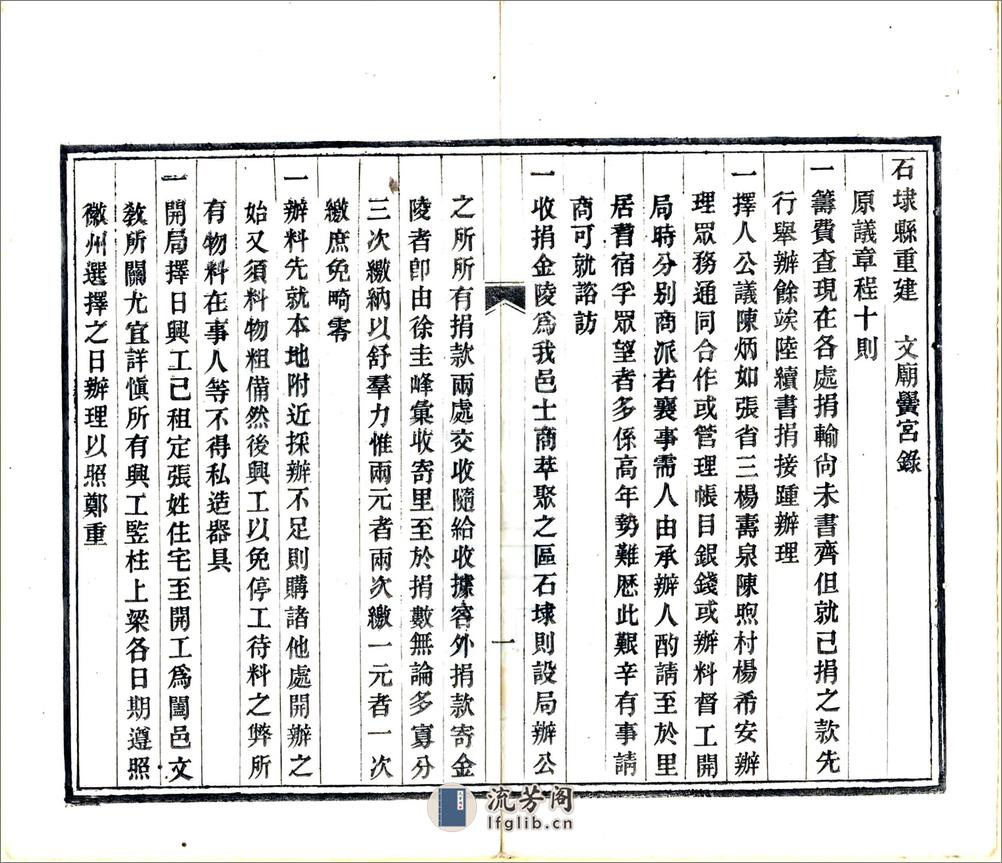 石埭縣重建　文廟黌宮錄
原議章程十則
一籌費查現在各處捐輸尙未書齊但就已捐之款先
行舉辦餘竢陸續書捐接踵辦理
一擇人公議陳炳如張省三楊壽泉陳煦村楊希安辦
理眾務通同合作或管理帳目銀錢或辦料督工開
局時分別商派若襄事需人由承辦人酌請至於里
居耆宿孚眾望者多係高年勢難歷此艱辛有事請
商可就諮訪
一收捐金陵爲我邑士商萃聚之區石埭則設局辦公
一
之所所有捐款兩處交收隨給收據客外捐款寄金
陵者卽由徐圭峰彙收寄里至於捐數無論多寡分
三次繳納以舒羣力惟兩元者兩次繳一元者一次
繳庶免畸零
一辦料先就本地附近採辦不足則購諸他處開辦之
始又須料物粗備然後興工以免停工待料之弊所
有物料在事人等不得私造器具
一開局擇日興工已租定張姓住宅至開工爲闔邑文
敎所關尤宜詳愼所有興工豎柱上梁各日期遵照
徽州選擇之日辦理以照鄭重
流芳阁
lfglib.cn